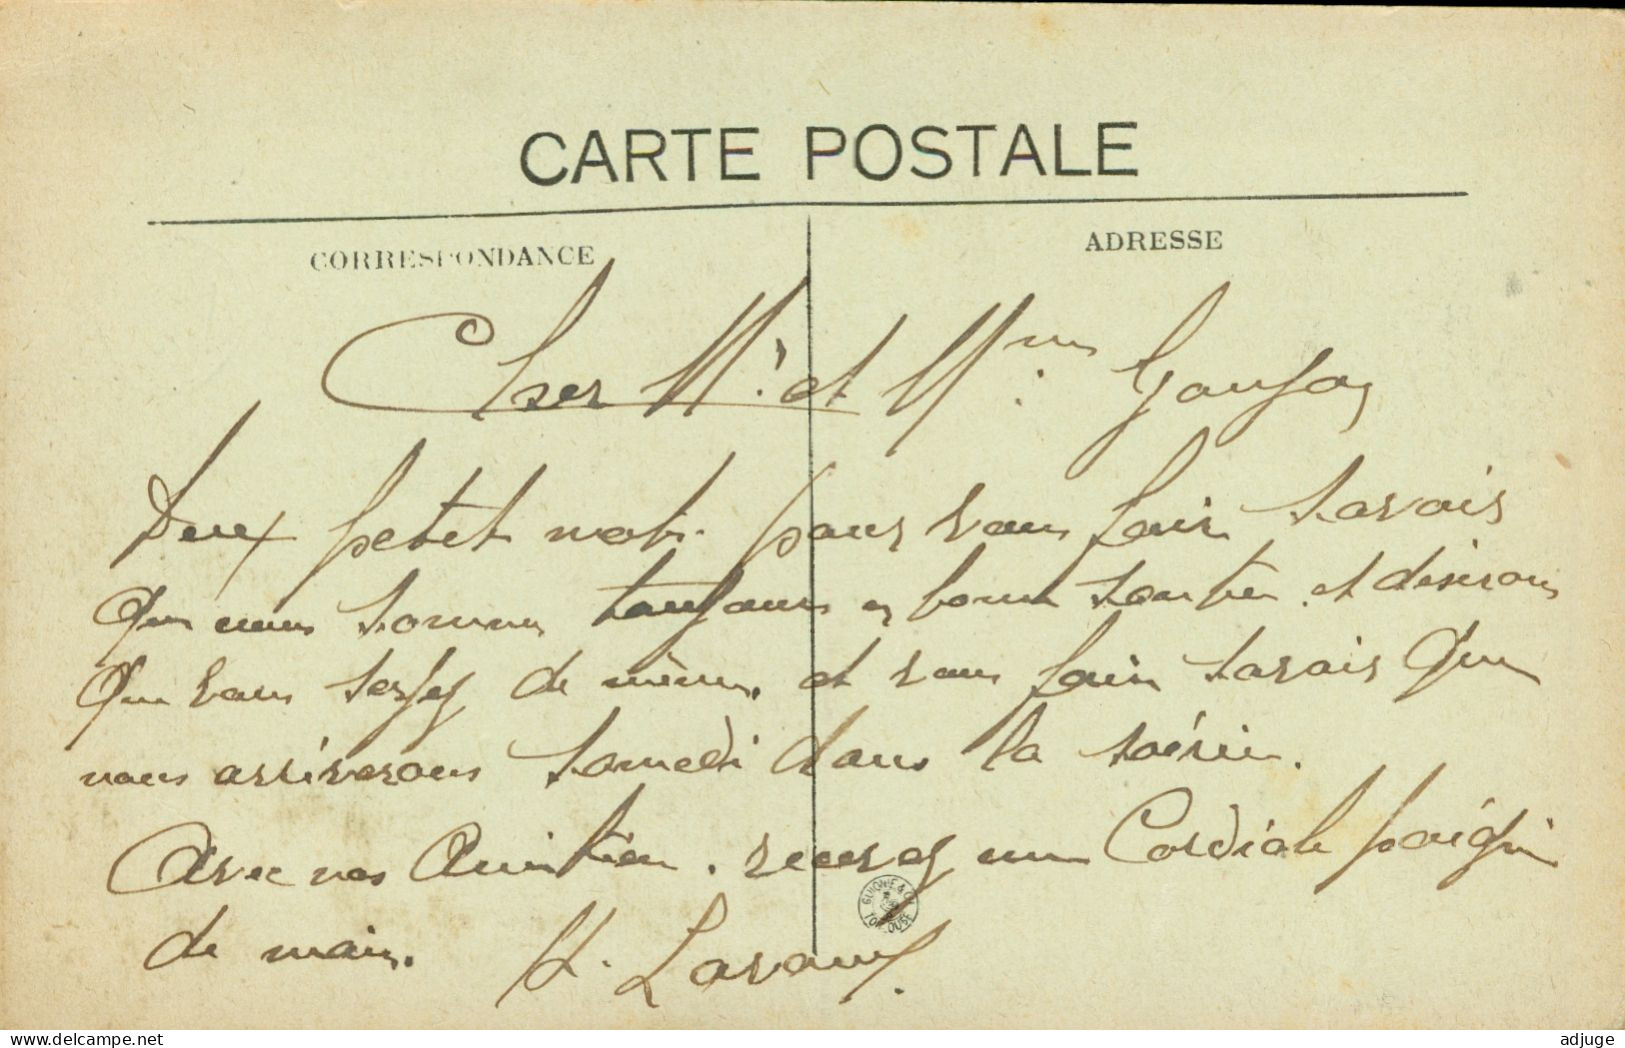 CARTE POSTALE
CORRESPONDANCE
ADRESSE
Cher Mr et Mme
Deux petit mots pour vous fair savoir
Que nous sommes toujours en bonne santée et desirons
Que vous soyez de même, et vous fair savoir Que
nous arriverons samedi dans la soérée.
Avec nos Amitiées. recevez une Cordiale poignée
de main.
GUIONIE & Cie TOULOUSE
delcampe.net
adjuge